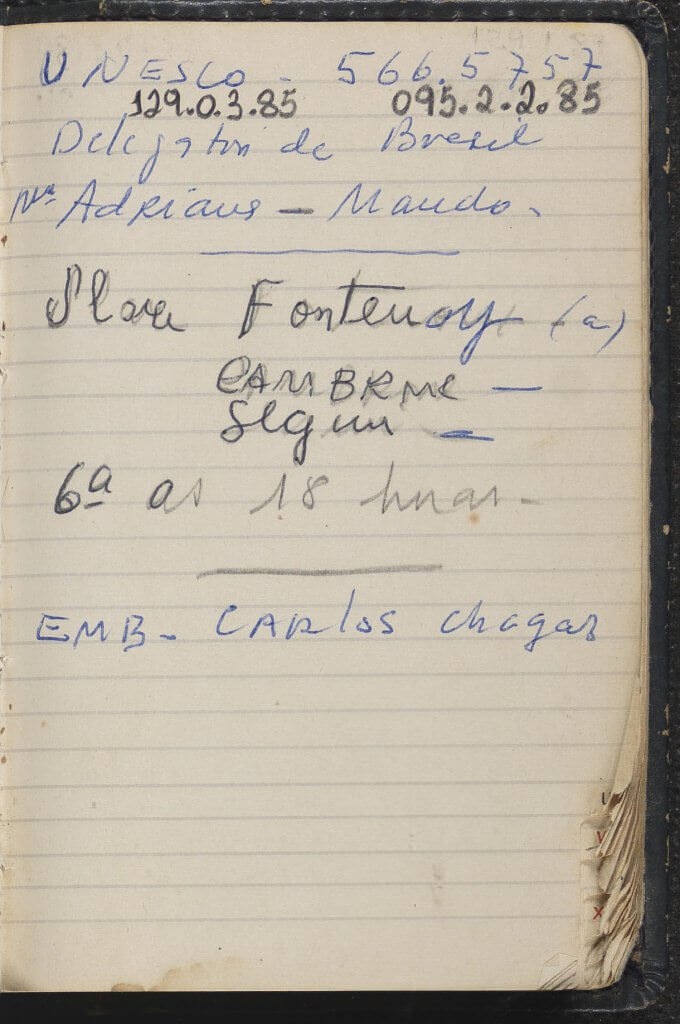 UNESCO - 566.5757
129.0.3.85 095.2.2.85
Delegation de Bresil
Adriano - Mando -
Fontenoy (a)
CAMBRNE -
Segur -
6ª as 18 horas -
EMB - CARlos chagas
U
V
X